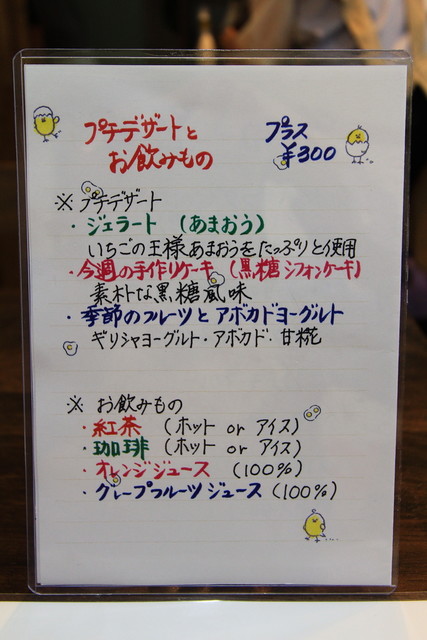 プチデザートと
お飲みもの
プラス
¥300
※ プチデザート
・ジェラート (あまおう)
いちごの王様あまおうをたっぷりと使用
・今週の手作りケーキ (黒糖シフォンケーキ)
素朴な黒糖風味
・季節のフルーツとアボカドヨーグルト
ギリシャヨーグルト・アボカド・甘糀
※ お飲みもの
・紅茶 (ホット or アイス)
・珈琲 (ホット or アイス)
・オレンジジュース (100%)
・グレープフルーツジュース (100%)